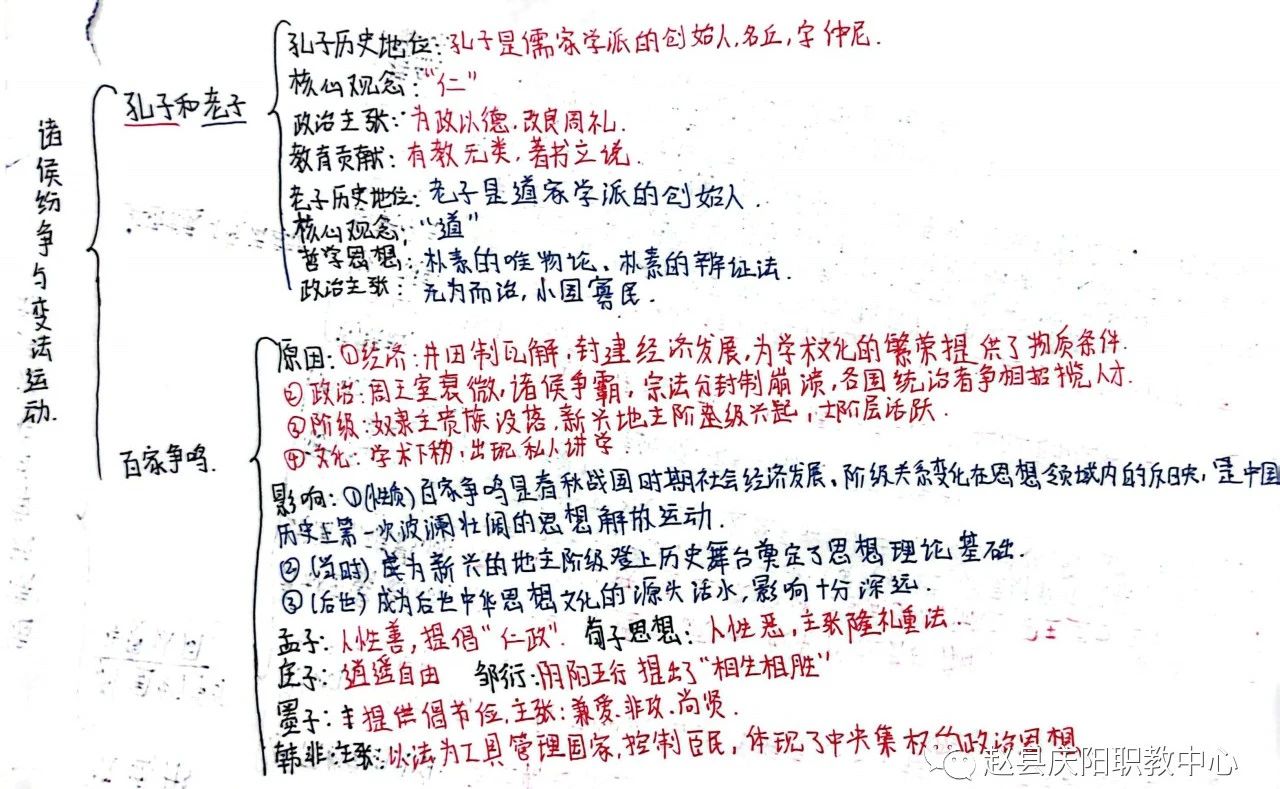 诸侯纷争与变法运动.
孔子和老子
孔子历史地位:孔子是儒家学派的创始人,名丘,字仲尼.
核心观念:"仁"
政治主张:为政以德.改良周礼.
教育贡献:有教无类,著书立说.
老子历史地位:老子是道家学派的创始人.
核心观念:"道"
哲学思想:朴素的唯物论、朴素的辨证法.
政治主张:无为而治,小国寡民.
百家争鸣.
原因:①经济:井田制瓦解,封建经济发展,为学术文化的繁荣提供了物质条件.
②政治:周王室衰微,诸侯争霸,宗法分封制崩溃,各国统治者争相招揽人才.
③阶级:奴隶主贵族没落,新兴地主阶级兴起,士阶层活跃.
④文化:学术下移,出现私人讲学.
影响:①(性质)百家争鸣是春秋战国时期社会经济发展、阶级关系变化在思想领域内的反映,是中国
历史上第一次波澜壮阔的思想解放运动.
②(当时)成为新兴的地主阶级登上历史舞台奠定了思想理论基础.
③(后世)成为后世中华思想文化的源头活水,影响十分深远.
孟子:人性善,提倡"仁政". 荀子思想:人性恶,主张隆礼重法.
庄子:逍遥自由 邹衍:阴阳五行 提出了"相生相胜"
墨子:提供倡节俭,主张:兼爱.非攻.尚贤.
韩非:主张:以法为工具管理国家,控制臣民,体现了中央集权的政治思想
赵县庆阳职教中心